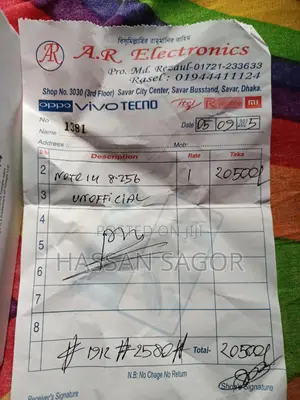 বিসমিল্লাহির রাহমানির রাহিম
AR A.R Electronics
Pro. Md. Rezaul-01721-233633
Rasel: 01944411124
Shop No. 3030 (3rd Floor) Savar City Center, Savar Busstand, Savar, Dhaka.
oppo vivo TECNO itel mi
No 1381 Date 05 09 2025
Name:
Address: Mob:
Description Rate Taka
2 NOTE 14 8.256 1 20500/
3 UNOFFICIAL
4
5
POSTED ON JIJI
HASSAN SAGOR
6
7
8
#1912 #2580# Total- 20500/
N.B: No Chage No Return
Receiver's Signature Shop's Signature